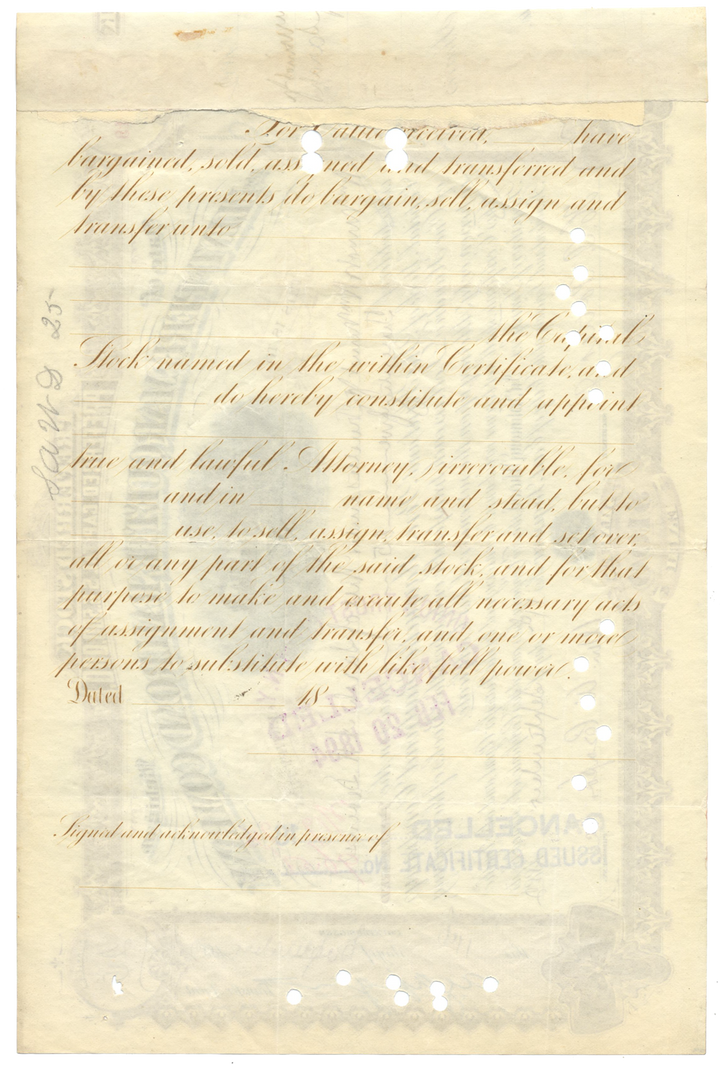 For Value received, have
bargained, sold, assigned and transferred and
by these presents do bargain, sell, assign and
transfer unto
the Capital
Stock named in the within Certificate, and
do hereby constitute and appoint
true and lawful Attorney, irrevocable, for
and in name and stead, but to
use, to sell, assign, transfer and set over,
all or any part of the said stock, and for that
purpose to make and execute all necessary acts
of assignment and transfer, and one or more
persons to substitute with like full power.
Dated 18
Signed and acknowledged in presence of
25
CANCELLED
FEB 20 1894
CANCELLED
ISSUED CERTIFICATE No.